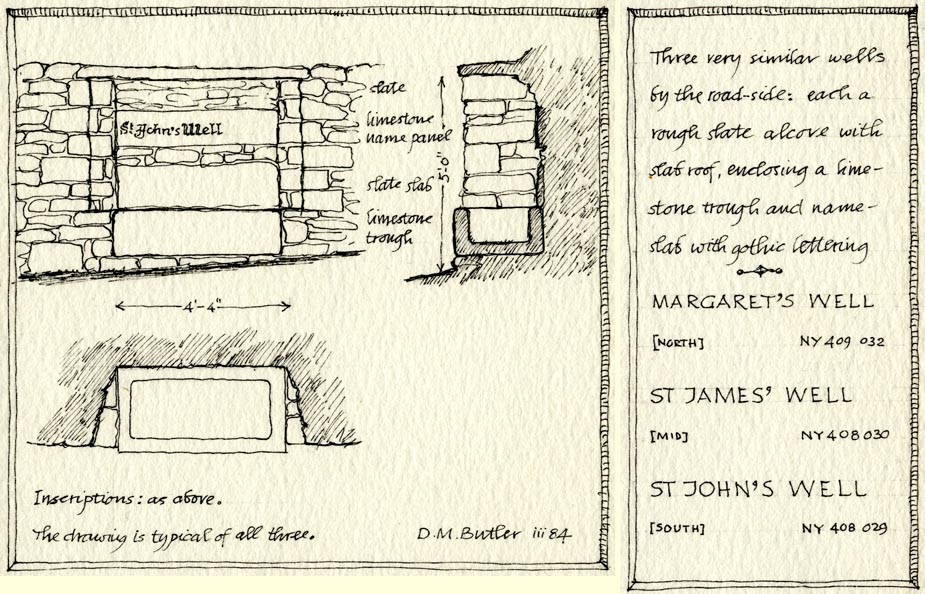 slate
limestone
name panel
St John's Well
slate slab
limestone
trough
5'-0"
4'-4"
Inscriptions: as above.
The drawing is typical of all three.
D.M.Butler iii 84
Three very similar wells
by the road-side: each a
rough slate alcove with
slab roof, enclosing a lime-
stone trough and name-
slab with gothic lettering
MARGARET'S WELL
[NORTH] NY 409 032
ST JAMES' WELL
[MID] NY 408 030
ST JOHN'S WELL
[SOUTH] NY 408 029